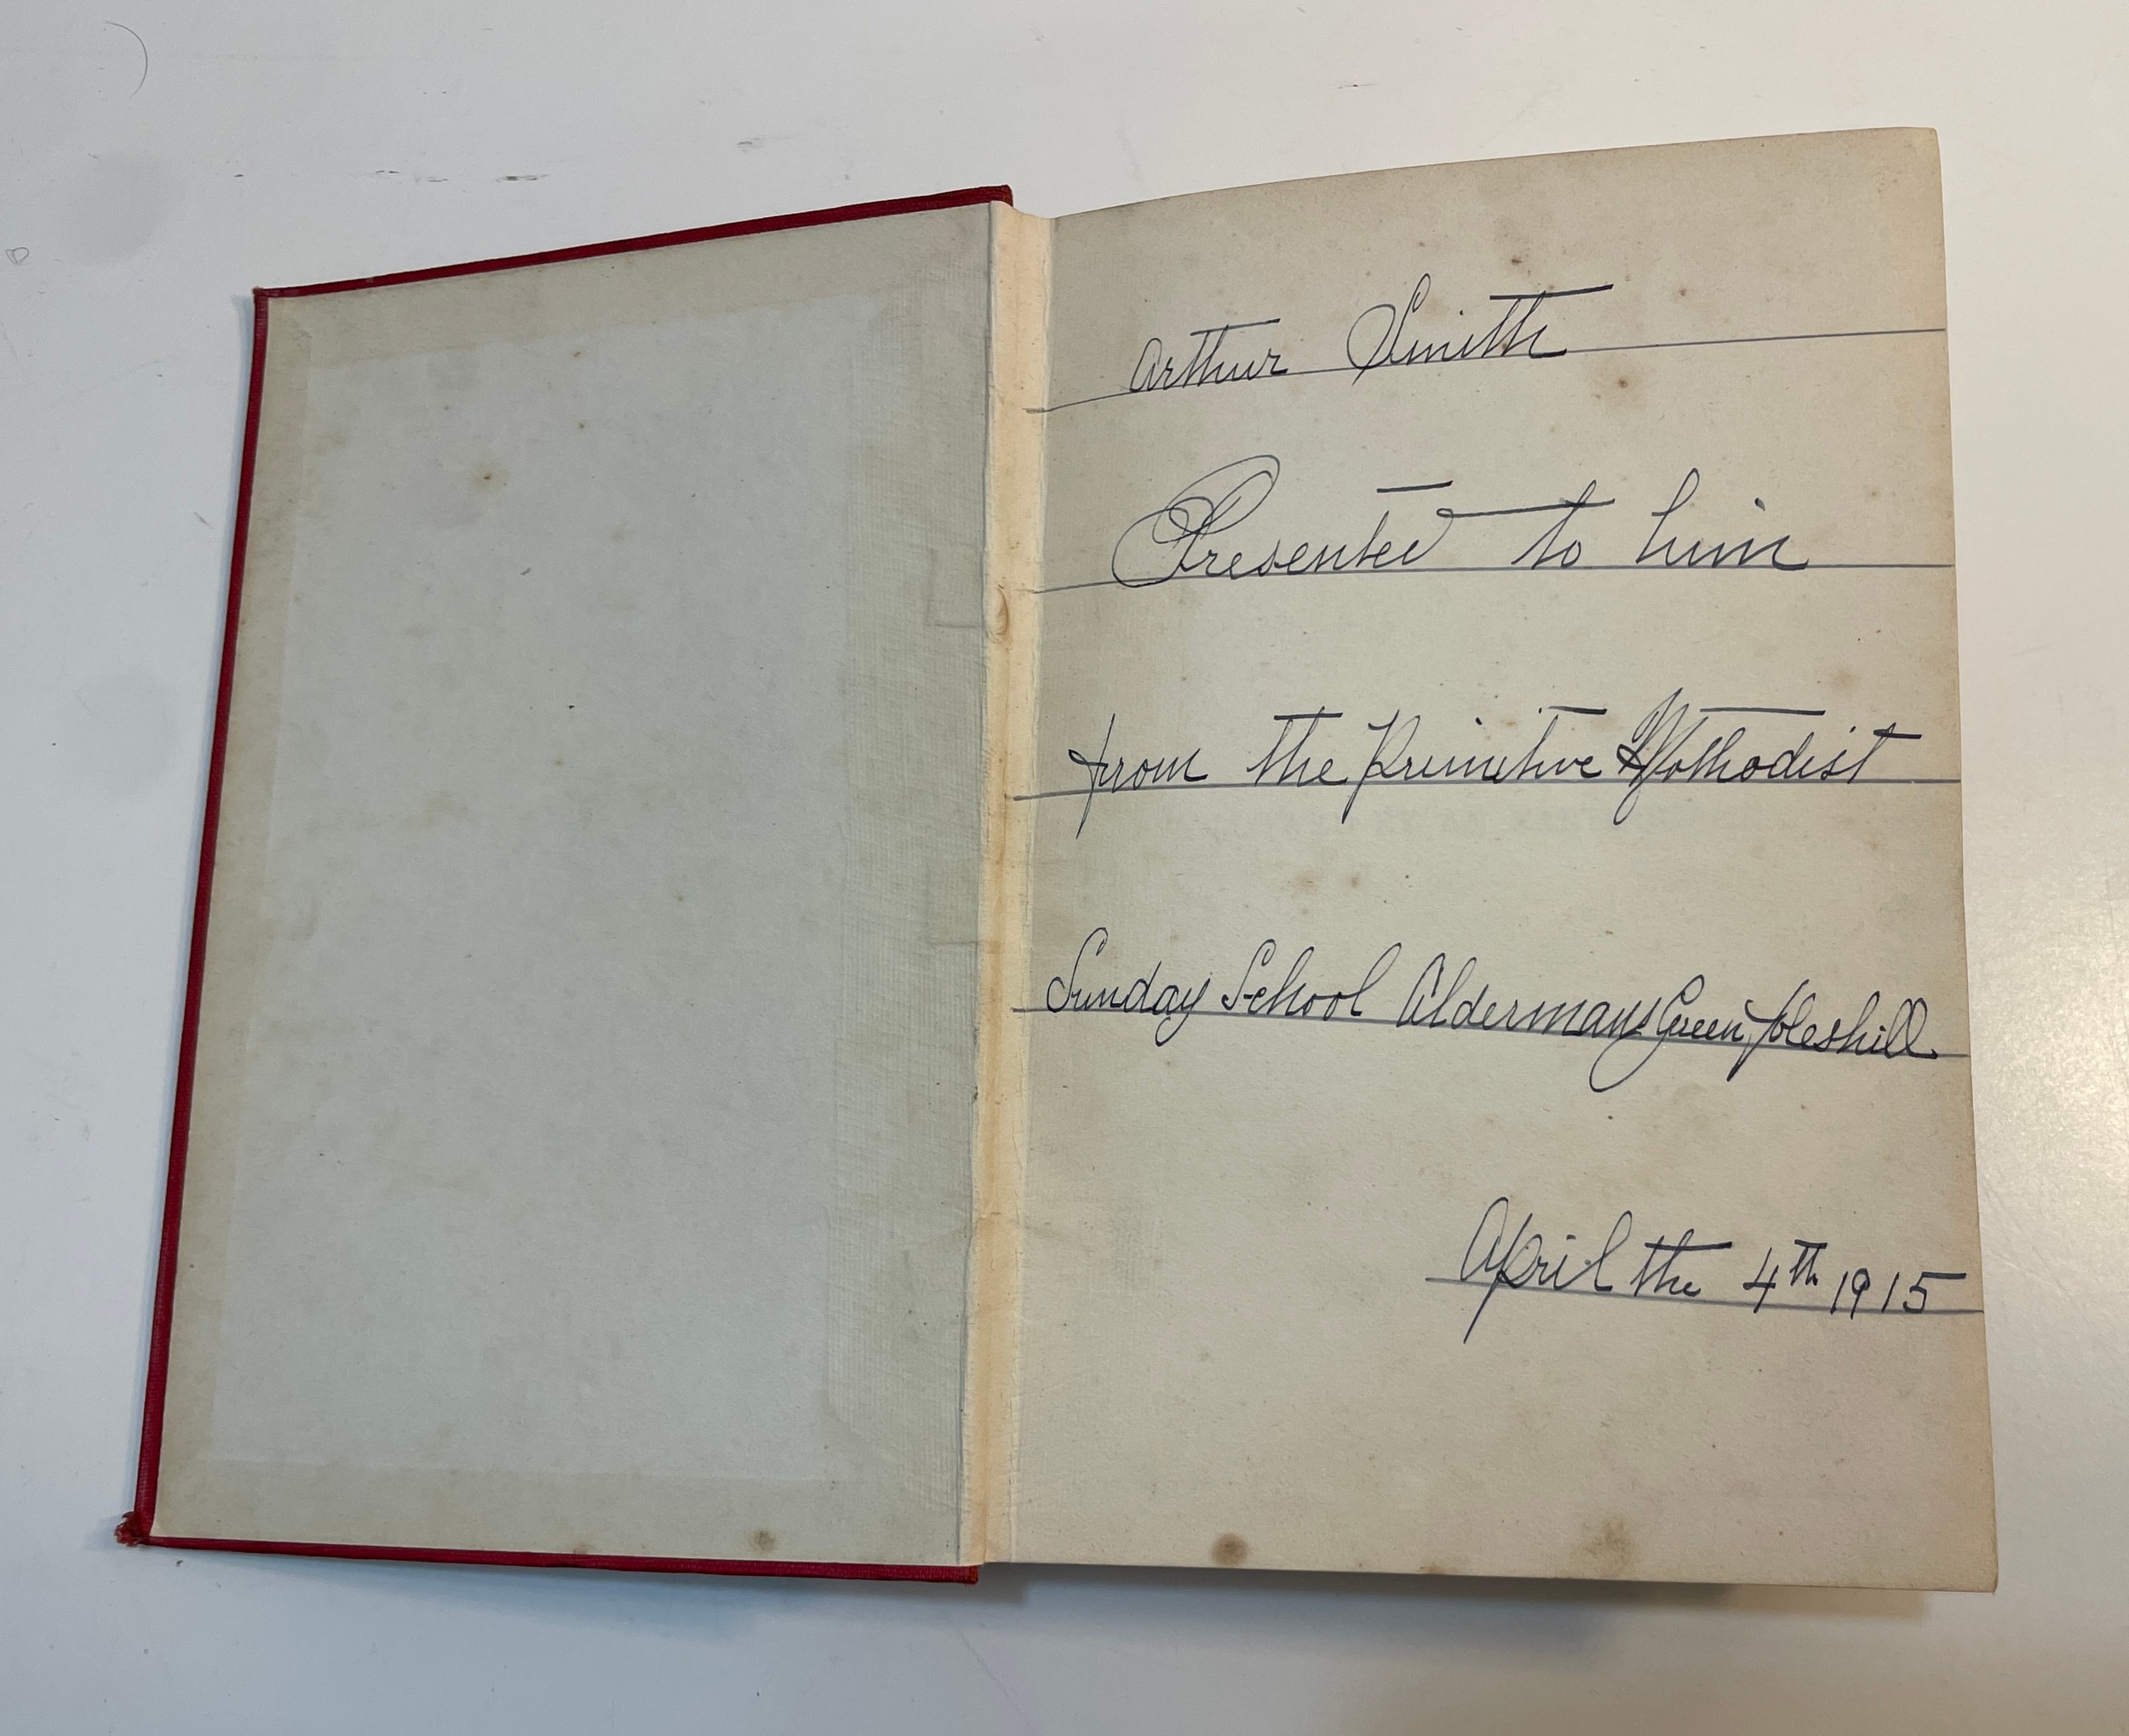 Arthur Smith
Presented to him
from the Primitive Methodist
Sunday School Aldermans Green, Foleshill
April the 4th 1915